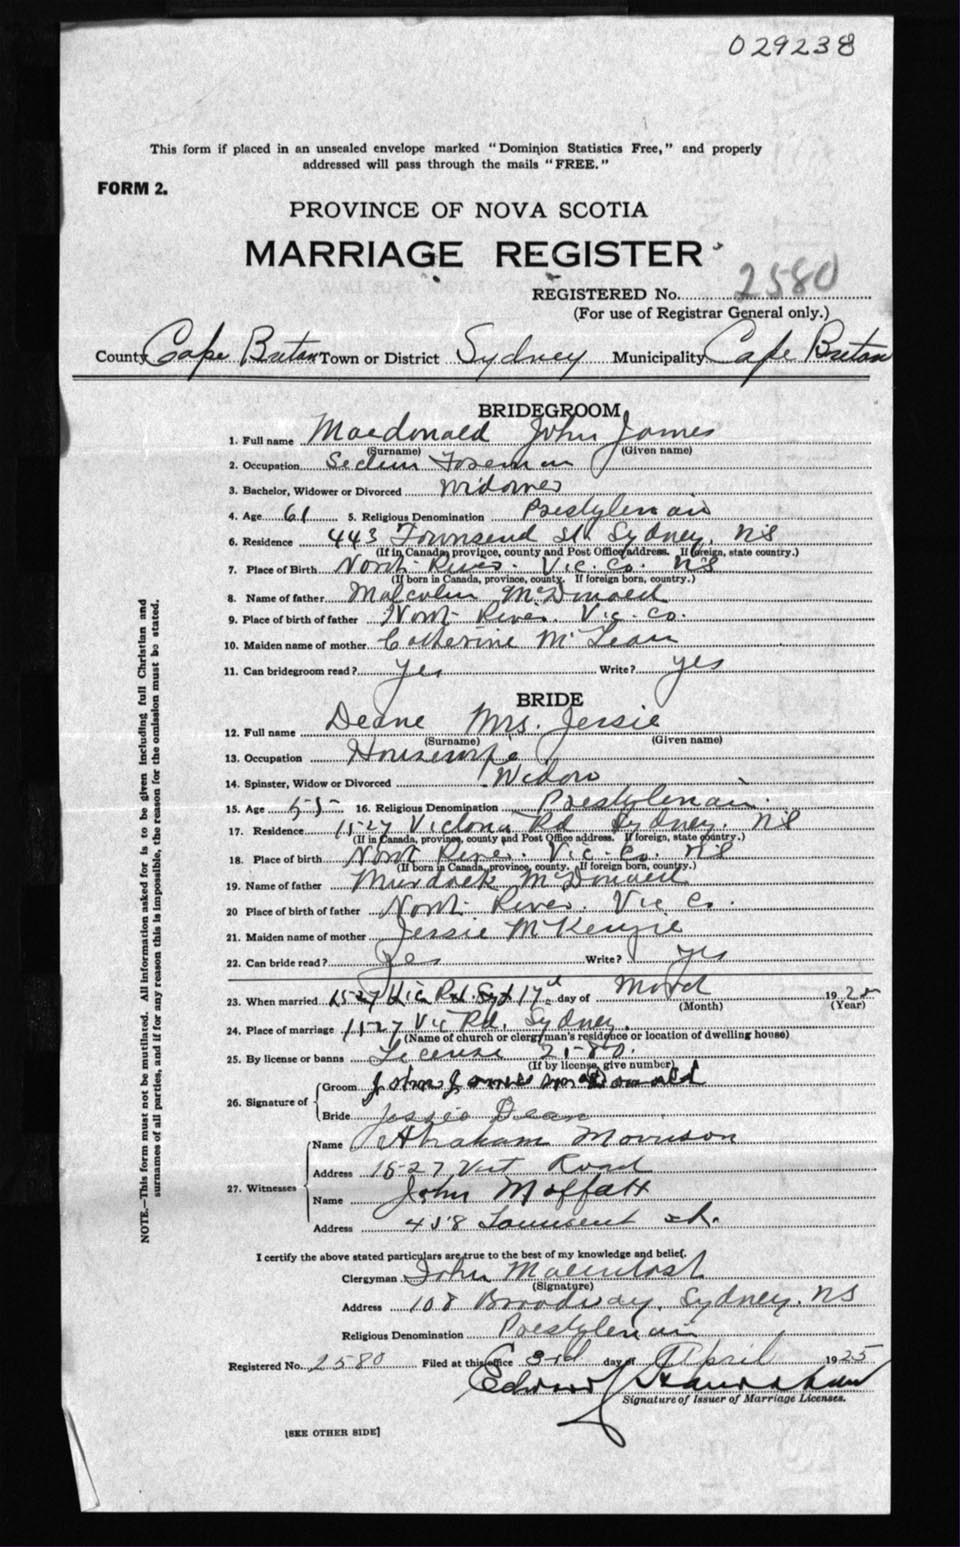 029238
This form if placed in an unsealed envelope marked "Dominion Statistics Free," and properly
addressed will pass through the mails "FREE."
FORM 2.
PROVINCE OF NOVA SCOTIA
MARRIAGE REGISTER
REGISTERED No. 2580
(For use of Registrar General only.)
County Cape Breton Town or District Sydney Municipality Cape Breton
BRIDEGROOM
1. Full name Macdonald John James
(Surname) (Given name)
2. Occupation Section Foreman
3. Bachelor, Widower or Divorced Widower
4. Age 61 5. Religious Denomination Presbyterian
6. Residence 443 Townsend St. Sydney, NS
(If in Canada, province, county and Post Office address. If foreign, state country.)
7. Place of Birth North River. Vic. Co. NS
(If born in Canada, province, county. If foreign born, country.)
8. Name of father Malcolm McDonald
9. Place of birth of father North River. Vic. Co.
10. Maiden name of mother Catherine McLean
11. Can bridegroom read? yes Write? yes
BRIDE
12. Full name Deane Mrs. Jessie
(Surname) (Given name)
13. Occupation Housewife
14. Spinster, Widow or Divorced Widow
15. Age 55 16. Religious Denomination Presbyterian
17. Residence 1527 Victoria Rd Sydney, NS
(If in Canada, province, county and Post Office address. If foreign, state country.)
18. Place of birth North River. Vic. Co. NS
(If born in Canada, province, county. If foreign born, country.)
19. Name of father Murdock McDonald
20 Place of birth of father North River. Vic Co.
21. Maiden name of mother Jessie McKenzie
22. Can bride read? yes Write? yes
23. When married 1527 Vic Rd. Syd 17th day of March 1925
(Month) (Year)
24. Place of marriage 1527 Vic Rd, Sydney.
(Name of church or clergyman's residence or location of dwelling house)
25. By license or banns License 2580.
(If by license, give number)
26. Signature of
Groom John James McDonald
Bride Jessie Dean
27. Witnesses
Name Abraham Morrison
Address 1527 Vict Road
Name John Moffatt
Address 458 Townsent St.
I certify the above stated particulars are true to the best of my knowledge and belief.
Clergyman John Macintosh
(Signature)
Address 108 Broadway, Sydney, NS
Religious Denomination Presbyterian
Registered No. 2580 Filed at this office 3rd day of April 1925
Edward
Signature of Issuer of Marriage Licenses.
[SEE OTHER SIDE]
NOTE.—This form must not be mutilated. All information asked for is to be given including full Christian and
surnames of all parties, and if for any reason this is impossible, the reason for the omission must be stated.